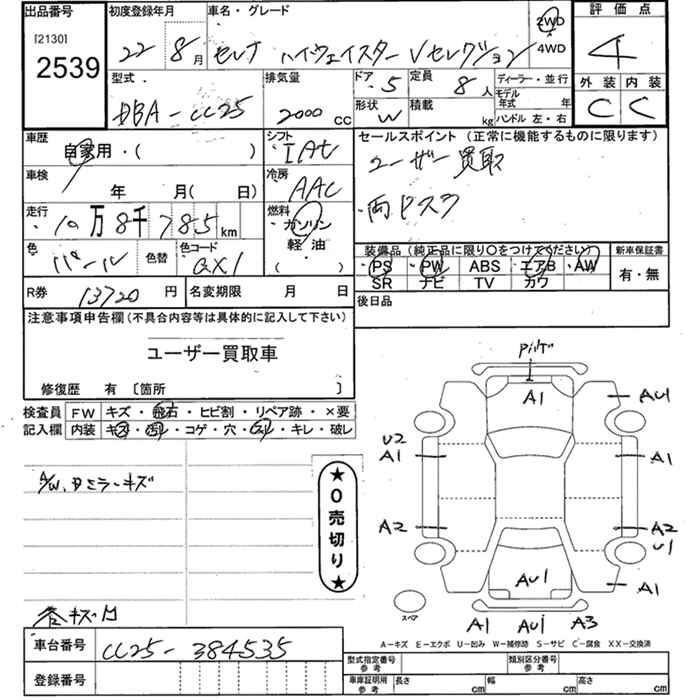 出品番号 初度登録年月 車名・グレード 評価点
[2130] 22 8月 セレナ ハイウェイスター Vセレクション 2WD 4WD 4
2539
型式 排気量 ドア 5 定員 8人 ディーラー・並行 外装 内装
DBA-CC25 2000cc 形状 W 積載 kg モデル年式 年 C C
ハンドル 左・右
車歴 シフト セールスポイント (正常に機能するものに限ります)
自家用・( ) IAT ユーザー買取
車検 冷房
年 月(日) AAC
走行 燃料
10万8千785km ガソリン 軽・油 ( )
色 色替 色コード 装備品(純正品に限り○をつけてください) 新車保証書
パール QX1 PS PW ABS エアB AW 有・無
SR ナビ TV カワ
R券 13720円 名変期限 月 日 後日品
注意事項申告欄(不具合内容等は具体的に記入して下さい)
ユーザー買取車
修復歴 有〔箇所 〕
検査員 FW キズ・飛石・ヒビ割・リペア跡・×要
記入欄 内装 キズ・汚レ・コゲ・穴・スレ・キレ・破レ
A1 AU1
U2
A1 A1
A/W、ドミラーキズ
★0売切り★
A2 A2
U1
AU1 A1
スペア
A1 AU1 A3
A-キズ E-エクボ U-凹み W-補修跡 S-サビ C-腐食 XX-交換済
車台番号 CC25-384535
型式指定番号 参考 類別区分番号 参考
登録番号 車庫証明用 参考 長さ cm 幅 cm 高さ cm